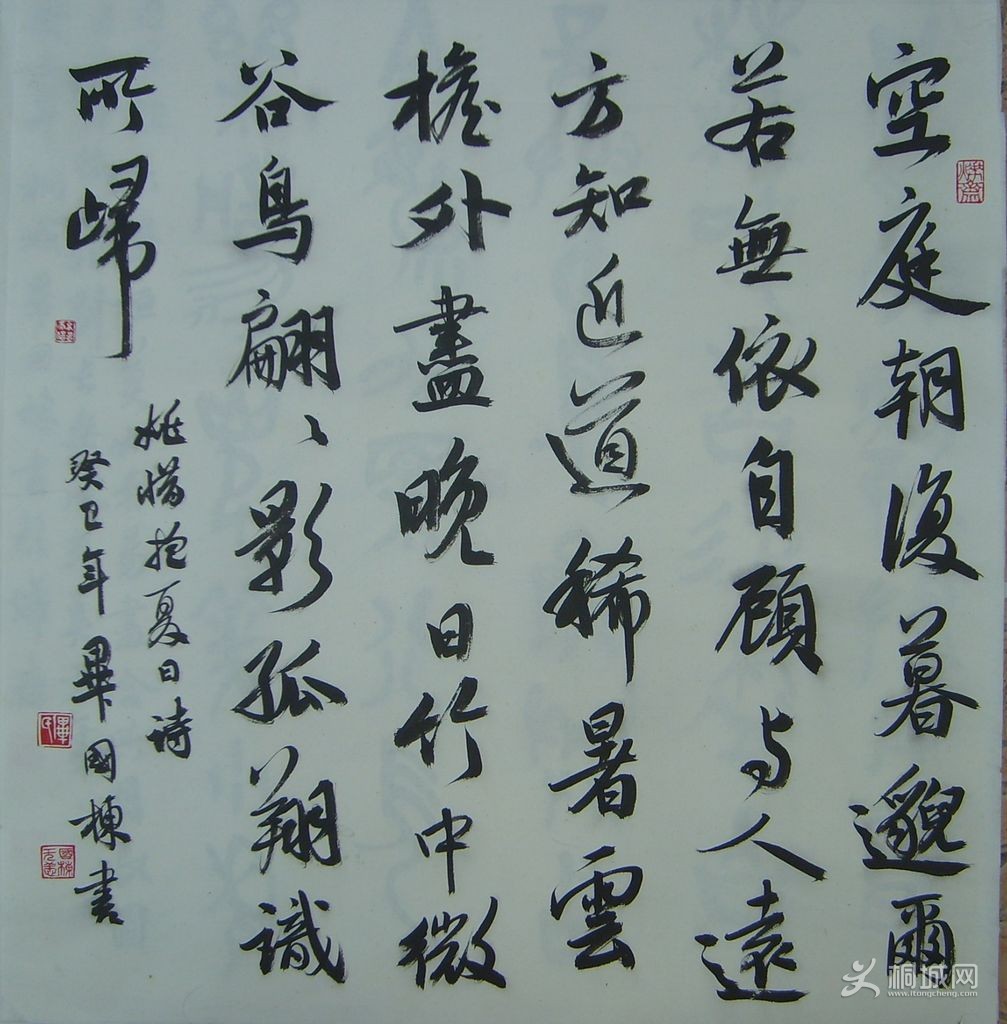 空庭朝復暮邈爾
若無依自顧与人遠
方知近道稀暑雲
檐外盡晚日竹中微
谷鳥翩、影孤翔識
所歸
姚惜抱夏日詩
癸巳年畢國棟書
桐城网
www.itongcheng.com